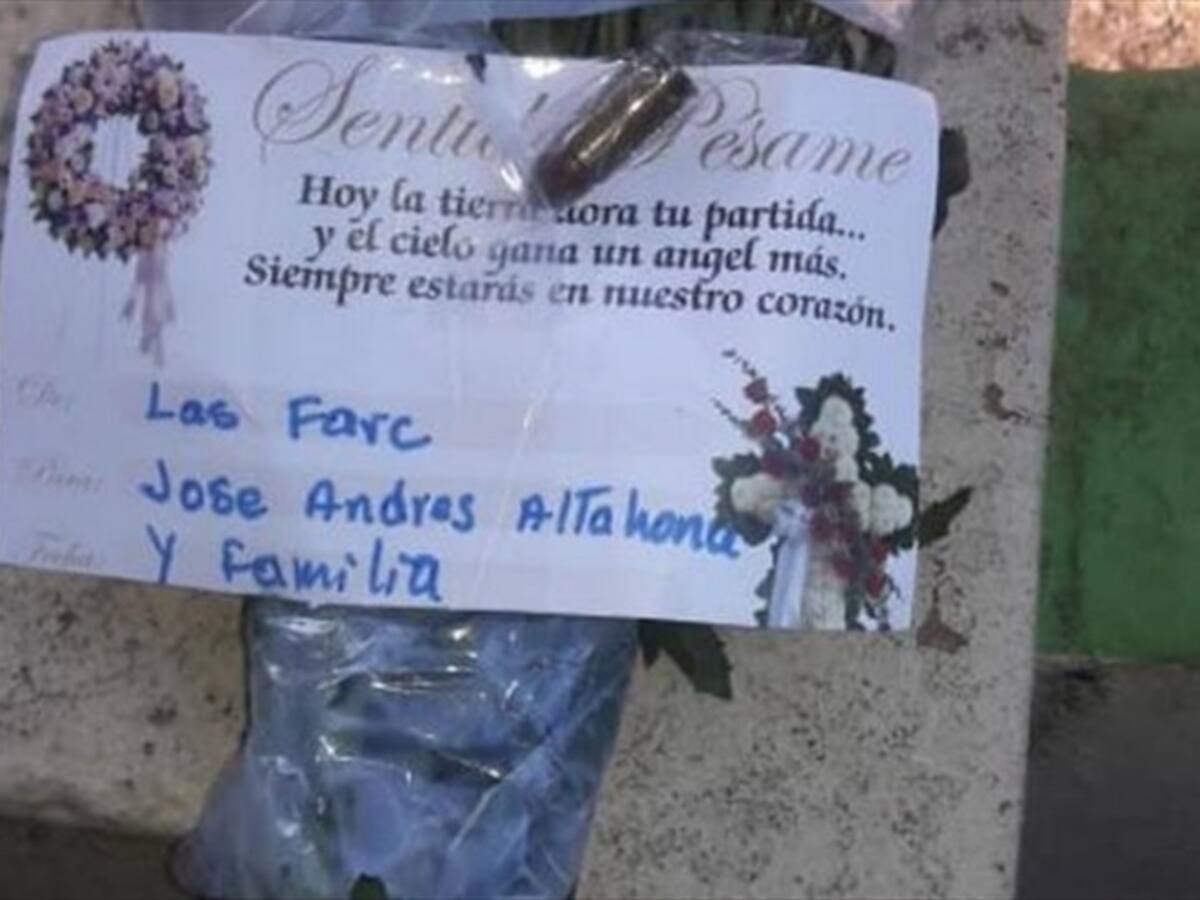 Pésame
Hoy la tierra llora tu partida...
y el cielo gana un angel más.
Siempre estarás en nuestro corazón.
De: Las Farc
Para: Jose Andres AlTahona
Fecha: Y Familia